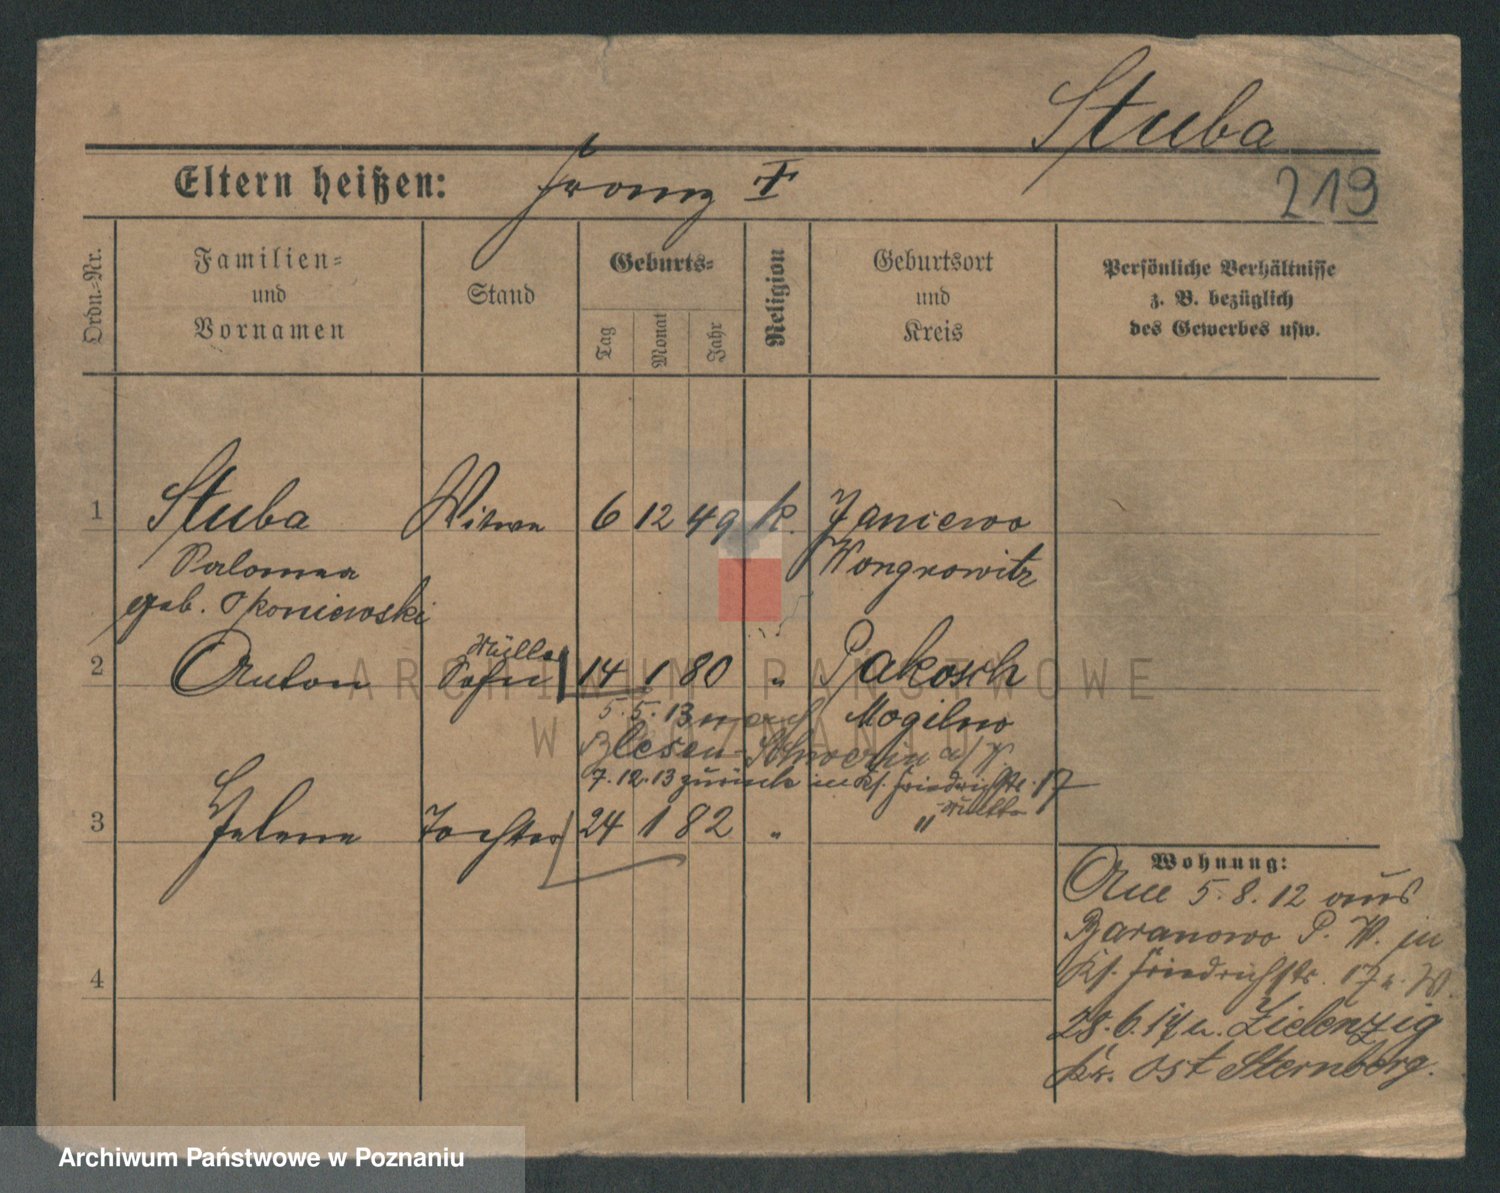 Stuba
Eltern heißen: Franz †
219
Ordn.-Nr.
Familien- und Vornamen
Stand
Geburts-
Tag Monat Jahr
Religion
Geburtsort und Kreis
Persönliche Verhältnisse
z. B. bezüglich
des Gewerbes usw.
1 Stuba Witwe 6 12 49 k. Janiewo
Salomea Wongrowitz
geb. Okoniewski
Müller
2 Anton Sohn 14 1 80 " Pakosch
5. 5. 13 nach Mogilno
Blesen Schwerin a/W.
7. 12. 13 zurück in Ks. Friedrichstr. 17
" Mutter
3 Helene Tochter 24 1 82 "
4
Wohnung:
Am 5. 8. 12 aus
Baranowo P. W. in
Ks. Friedrichstr. 17 a. W.
28. 6. 14 n. Zielenzig
Kr. Ost Sternberg.
ARCHIWUM PAŃSTWOWE
W POZNANIU
Archiwum Państwowe w Poznaniu